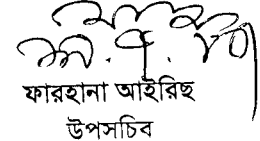 ফারহানা আইরিছ
উপসচিব